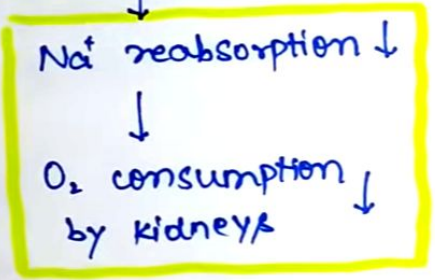 ↓
Na⁺ reabsorption ↓
↓
O₂ consumption ↓
by kidneys